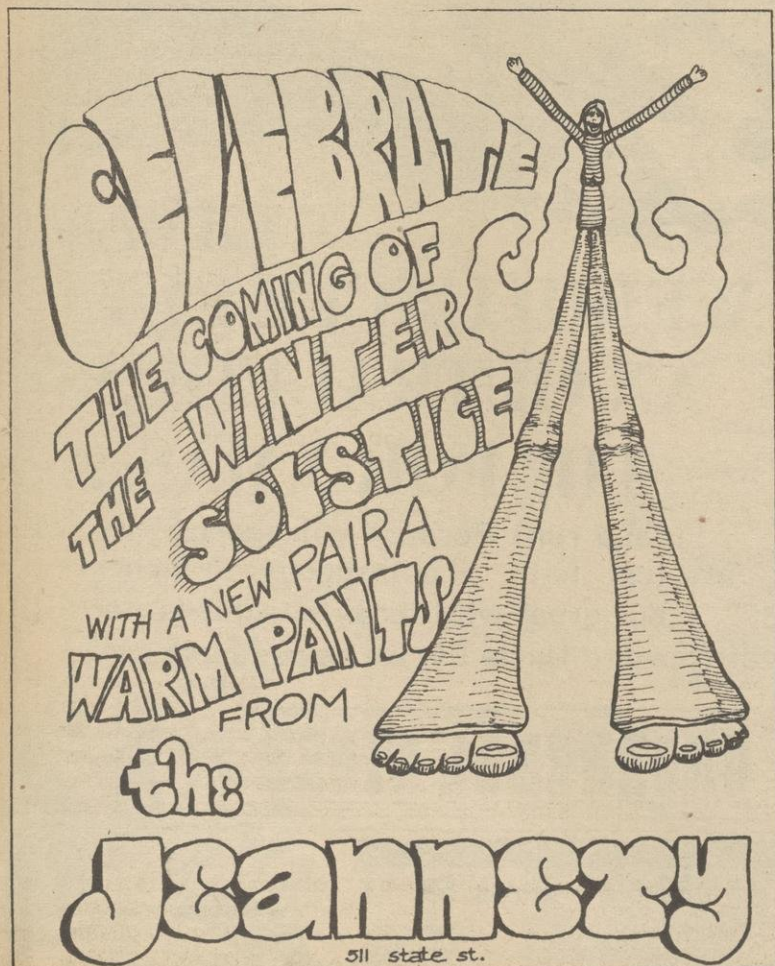 CELEBRATE
THE COMING OF
THE WINTER
SOLSTICE
WITH A NEW PAIRA
WARM PANTS
FROM
the
Jeannery
511 state st.